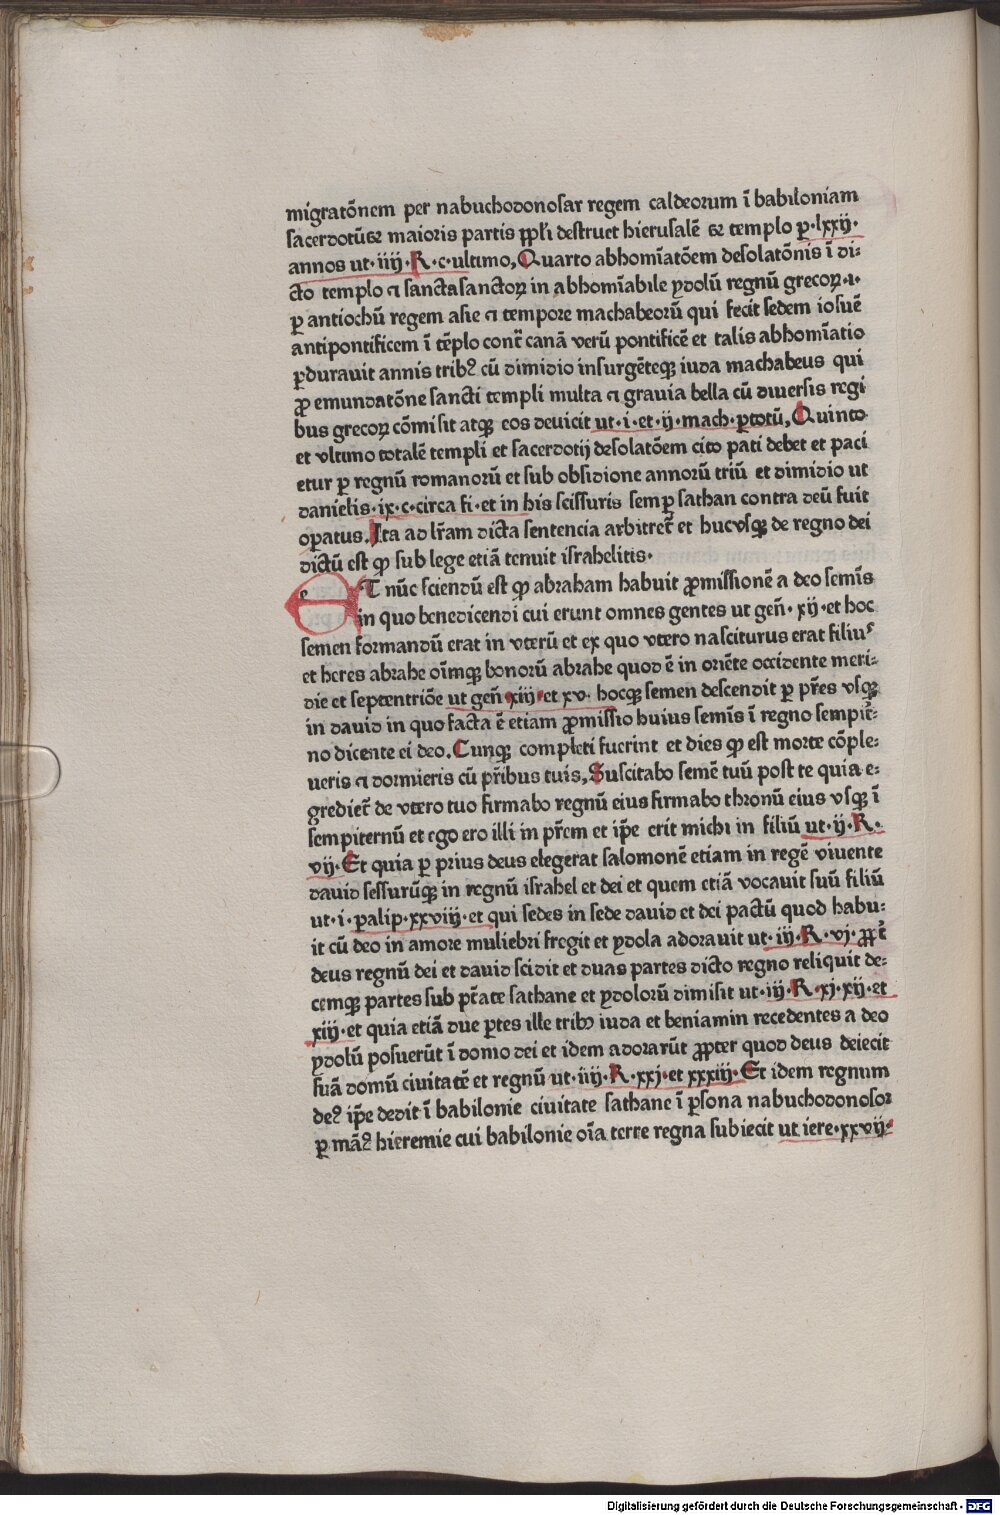 migratōnem per nabuchodonosar regem caldeorum ī babiloniam
sacerdotūqꝫ maioris partis ꝓpl'i destruet hierusalē qꝫ templo ꝑ·lxxij·
annos ut·iiij·R·c·ultimo, Quarto abhomīatōem desolatōnis ī di-
cto templo ⁊ sanctasanctoꝝ in abhomīabile ydolū regnū grecoꝝ·⁊·
ꝑ antiochū regem asie ⁊ tempore machabeorū qui fecit sedem iosuē
antipontificem ī tēplo contˀ canā verū pontificē et talis abhomīatio
ꝑdurauit annis tribꝰ cū dimidio insurgēteqꝫ iuda machabeus qui
ꝓ emundatōne sancti templi multa ⁊ grauia bella cū diuersis regi
bus grecoꝝ cōmisit atqꝫ eos deuicit ut·i·et·ij·mach·ꝑtotū, Quinto
et vltimo totalē templi et sacerdotij desolatōem cito pati debet et paci
etur ꝑ regnū romanorū et sub obsidione annorū triū et dimidio ut
danielis·ix·c·circa fi·et in his scissuris semꝑ sathan contra deū fuit
oꝑatus. Ita ad lr̄am dicta sentencia arbitretˀ et hucvsqꝫ de regno dei
dictū est ꝙ sub lege etiā tenuit israhelitis·
ET nūc sciendū est ꝙ abraham habuit ꝓmissionē a deo semīs
in quo benedicendi cui erunt omnes gentes ut gen̄·xij·et hoc
semen formandū erat in vterū et ex quo vtero nasciturus erat filiuˢ
et heres abrahe oīmqꝫ bonorū abrahe quod ē in oriēte occidente meri-
die et septentriōe ut gen̄·xiij·et xv·hocqꝫ semen descendit ꝑ pr̄es vsqꝫ
in dauid in quo facta ē etiam ꝓmissio huius semīs ī regno sempit̄-
no dicente ei deo. Cunqꝫ completi fuerint et dies ꝙ est morte cōple-
ueris ⁊ dormieris cū pr̄ibus tuis, Suscitabo semē tuū post te quia e-
gredietˀ de vtero tuo firmabo regnū eius firmabo thronū eius vsqꝫ ī
sempiternū et ego ero illi in pr̄em et ip̄e erit michi in filiū ut·ij·R·
vij·Et quia ꝑ prius deus elegerat salomonē etiam in regē viuente
dauid sessurūqꝫ in regnū israhel et dei et quem etiā vocauit suū filiū
ut·i·ꝑalip·xxviij·et qui sedes in sede dauid et dei pactū quod habu-
it cū deo in amore muliebri fregit et ydola adorauit ut·iij·R·vj·ꝓptˀ
deus regnū dei et dauid scidit et duas partes dicto regno reliquit de-
cemqꝫ partes sub pt̄ate sathane et ydolorū dimisit ut·iij·R·xj·xij·et
xiij·et quia etiā due ꝑtes ille tribꝰ iuda et beniamin recedentes a deo
ydolū posuerūt ī domo dei et idem adorarūt ꝓpter quod deus deiecit
suā domū ciuitatē et regnū ut·iiij·R·xxj·et xxxiij·Et idem regnum
deꝰ ip̄e dedit ī babilonie ciuitate sathane ī ꝑsona nabuchodonosoꝛ
ꝑ māꝰ hieremie cui babilonie oīa terre regna subiecit ut iere·xxvij·
Digitalisierung gefördert durch die Deutsche Forschungsgemeinschaft - DFG